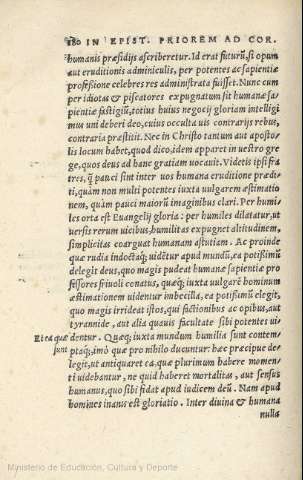 180 IN EPIST. PRIOREM AD COR.
humanis præsidijs ascriberetur. Id erat futurũ, si opum
aut eruditionis adminiculis, per potentes ac sapientiæ
professione celebres res administrata fuisset. Nunc cum
per idiotas & piscatores expugnatum sit humanæ sa-
pientiæ fastigiũ, totius huius negocij gloriam intelligi
mus uni deberi deo, cuius occulta uis contrarijs rebus,
contraria præstitit. Nec in Christo tantum aut aposto
lis locum habet, quod dico, idem apparet in uestro gre
ge, quos deus ad hanc gratiam uocauit. Videtis ipsi fra
tres, q̃ pauci sint inter uos humana eruditione prædi-
ti, quàm non multi potentes iuxta uulgarem æstimatio
nem, quàm pauci maiorũ imaginibus clari. Per humi-
les orta est Euangelij gloria: per humiles dilatatur, ut
uersis rerum uicibus, humilitas expugnet altitudinem,
simplicitas coarguat humanam astutiam. Ac proinde
quæ rudia indoctaq́; uidẽtur apud mundũ, ea potissimũ
delegit deus, quo magis pudeat humanæ sapientiæ pro
fessores friuoli conatus, quæq́; iuxta uulgarẽ hominum
æstimationem uidentur imbecilla, ea potissimũ elegit,
quo magis irrideat istos, qui factionibus ac opibus, aut
tyrannide, aut alia quauis facultate sibi potentes ui-
Et ea quæ dentur. Quæq; iuxta mundum humilia sunt contem-
sunt ptaq́;, imò quæ pro nihilo ducuntur: hæc præcipue de-
legit, ut antiquaret ea. quæ plurimum habere momen-
ti uidebantur, ne quid haberet mortalitas, aut sensus
humanus, quo sibi fidat apud iudicem deũ. Nam apud
homines inanis est gloriatio. Inter diuina & humana
nulla
Ministerio de Educación, Cultura y Deporte